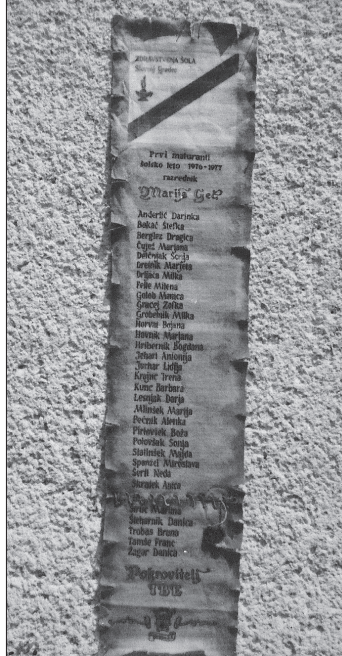 ZDRAVSTVENA ŠOLA
Slovenj Gradec
Prvi maturanti
šolsko leto 1976-1977
razrednik
Marija Gel
Anderlič Darinka
Bokač Štefka
Bergles Dragica
Čujež Marjana
Drečnik Marjeta
Felle Milena
Golob Monica
Gracej Zofka
Grobelnik Milka
Horvat Bojana
Hovnik Marjana
Hribernik Bogdana
Jehart Antonija
Juvnar Lidija
Krajnc Irena
Kunc Barbara
Lesnjak Darja
Mlinšek Marija
Pečnik Alenka
Pirtovšek Boža
Polovšak Sonja
Statinšek Majda
Spanzel Miroslava
Šerti Neda
Skrinjek Anica
Martina
Šteharnik Danica
Trobas Bruno
Tamše Franc
Žagar Danica
Pokrovitelj